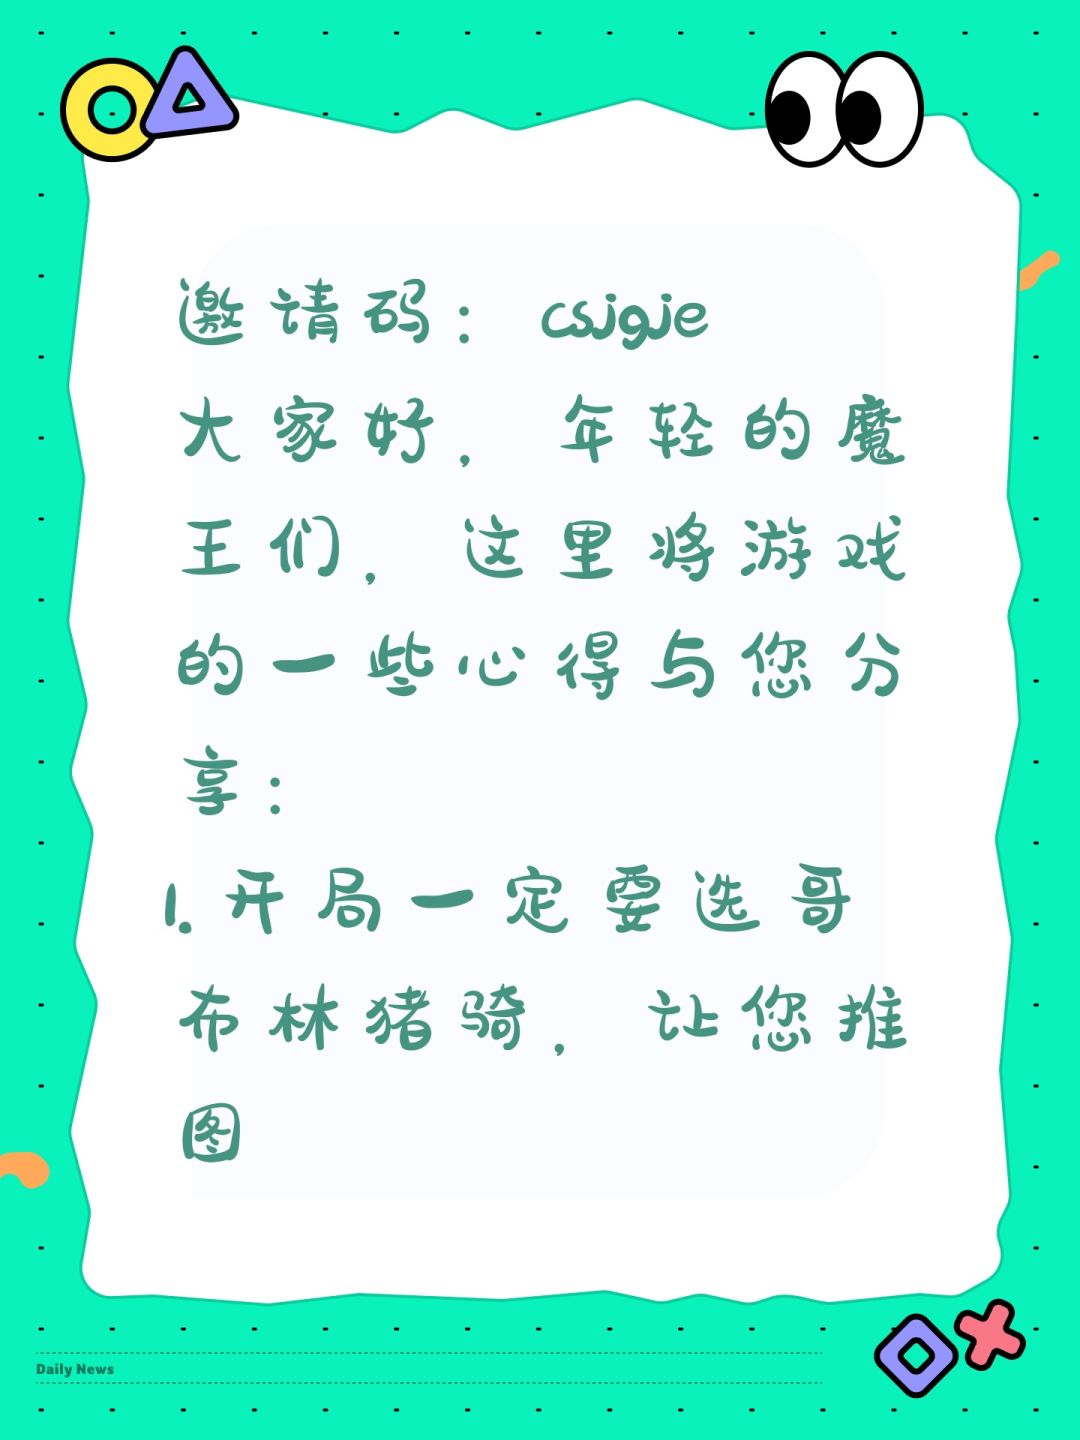 邀请码：csjgje
大家好，年轻的魔
王们，这里将游戏
的一些心得与您分
享：
1.开局一定要选哥
布林猪骑，让您推
图
Daily News